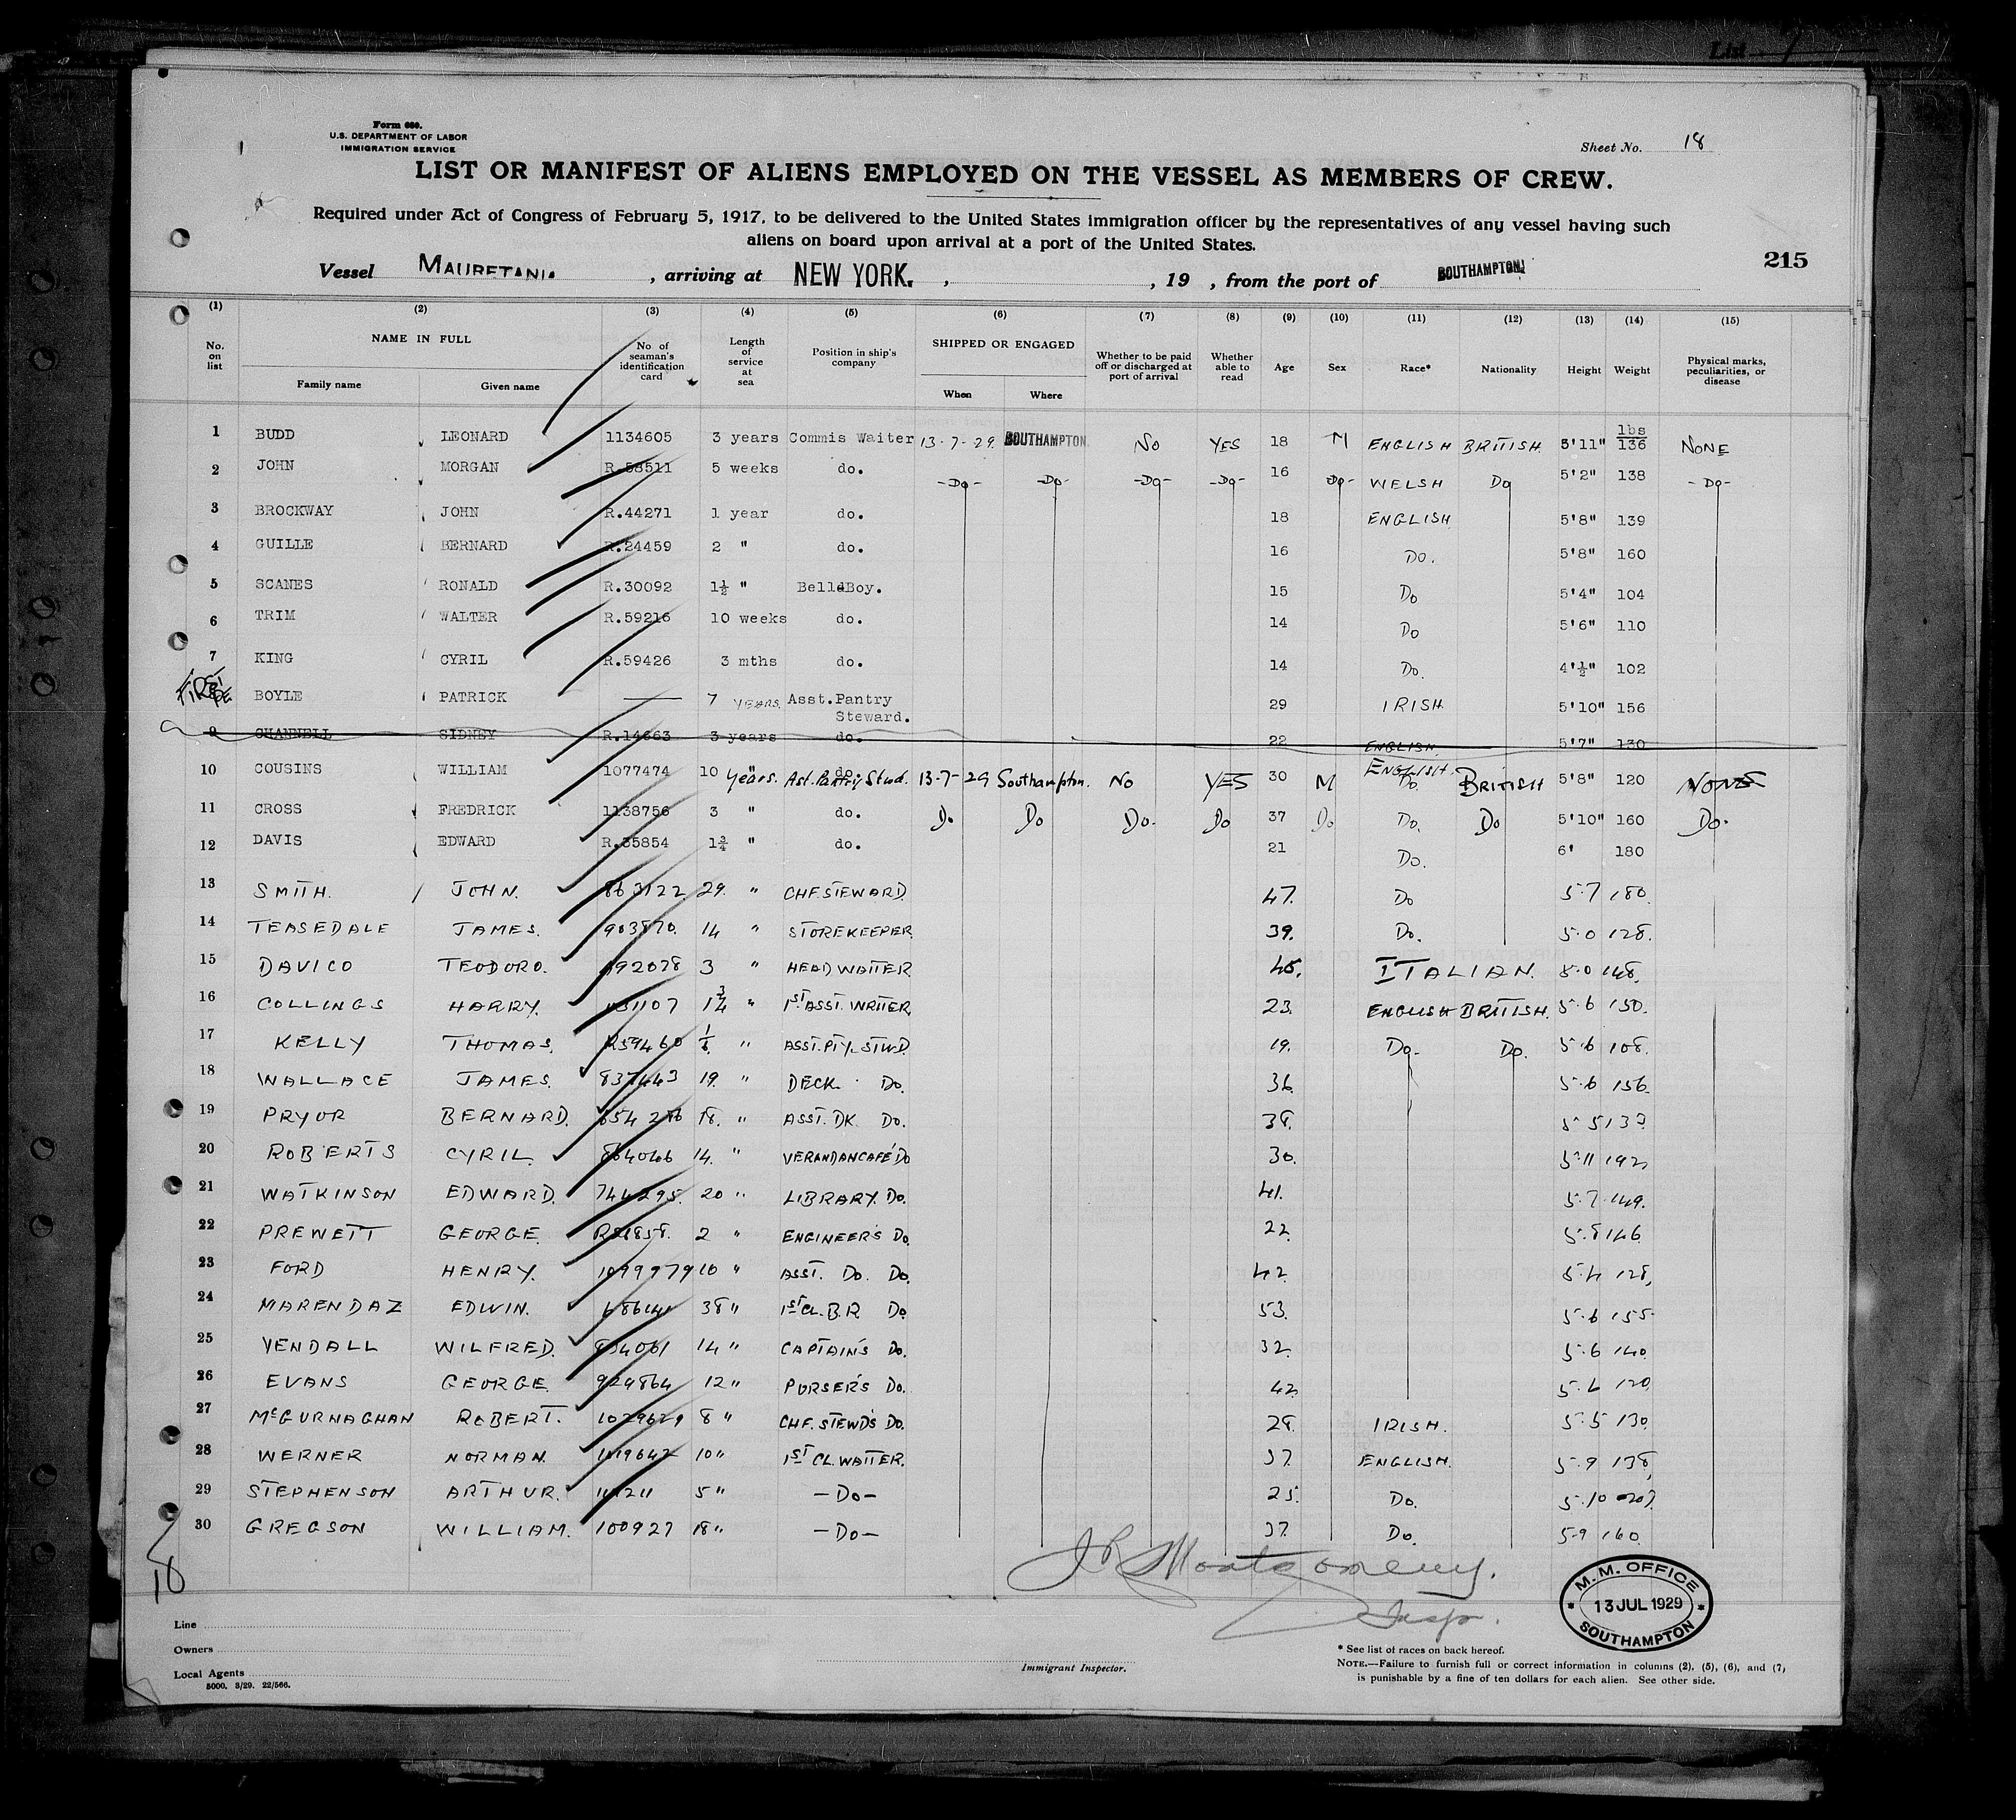 List 1
Form 680.
U.S. DEPARTMENT OF LABOR
IMMIGRATION SERVICE
Sheet No. 18
LIST OR MANIFEST OF ALIENS EMPLOYED ON THE VESSEL AS MEMBERS OF CREW.
Required under Act of Congress of February 5, 1917, to be delivered to the United States immigration officer by the representatives of any vessel having such
aliens on board upon arrival at a port of the United States.
215
Vessel MAURETANIA, arriving at NEW YORK. , , 19 , from the port of SOUTHAMPTON
(1) (2) (3) (4) (5) (6) (7) (8) (9) (10) (11) (12) (13) (14) (15)
No. on list NAME IN FULL Family name Given name No. of seaman's identification card Length of service at sea Position in ship's company SHIPPED OR ENGAGED When Where Whether to be paid off or discharged at port of arrival Whether able to read Age Sex Race* Nationality Height Weight Physical marks, peculiarities, or disease
1 BUDD LEONARD 1134605 3 years Commis Waiter 13-7-29 SOUTHAMPTON NO YES 18 M ENGLISH BRITISH 5'11" lbs 136 NONE
2 JOHN MORGAN R.58511 5 weeks do. -Do- -Do- -Do- -Do- 16 Do- WELSH Do 5'2" 138 -Do-
3 BROCKWAY JOHN R.44271 1 year do. 18 ENGLISH 5'8" 139
4 GUILLE BERNARD R.24459 2 " do. 16 Do. 5'8" 160
5 SCANES RONALD R.30092 1½ " Bell Boy. 15 Do 5'4" 104
6 TRIM WALTER R.59216 10 weeks do. 14 Do 5'6" 110
7 KING CYRIL R.59426 3 mths do. 14 Do. 4'½" 102
BOYLE PATRICK 7 YEARS. Asst.Pantry Steward. 29 IRISH 5'10" 156
9 CHANNELL SIDNEY R.14663 3 years do. 22 ENGLISH 5'7" 130
10 COUSINS WILLIAM 1077474 10 " years. do. Ast. Pantry Stwd. 13-7-29 Southampton. No YES 30 M ENGLISH. Do. BRITISH 5'8" 120 NONE
11 CROSS FREDRICK 1138756 3 " do. Do Do Do. Do 37 Do Do. Do 5'10" 160 Do.
12 DAVIS EDWARD R.35854 1¾ " do. 21 Do. 6' 180
13 SMITH. JOHN. 863122 29. " CHF.STEWARD. 47. Do 5.7 180.
14 TEASEDALE JAMES. 14 " STOREKEEPER 39. Do. 5.0 128.
15 DAVICO TEODORO. 3 " HEAD WAITER 45. ITALIAN. 5.0 148.
16 COLLINGS HARRY. 1¾ " 1ST ASST. WRITER, 23. ENGLISH BRITISH. 5.6 150.
17 KELLY THOMAS. R59460 " ASST. PTY. STWD. 19. Do. Do. 5.6 108.
18 WALLACE JAMES. 19. " DECK Do. 36. 5.6 156.
19 PRYOR BERNARD. 18. " ASST. DK. Do. 38. 5.5
20 ROBERTS CYRIL. 864046 14. " VERANDANCAFÉ Do 30. 5.11 192
21 WATKINSON EDWARD. 744295. 20 " LIBRARY. Do. 41. 5.7 149.
22 PREWETT GEORGE. 2 " ENGINEERS Do. 22. 5.8 146.
23 FORD HENRY. 1099979 10 " ASST. Do. Do. 42. 5.4 128,
24 MARENDAZ EDWIN. 38 " 1ST CL. B.R Do 53. 5.6 155
25 VENDALL WILFRED. 14 " CAPTAIN'S Do. 32. 5.6 140.
26 EVANS GEORGE. 929864 12 " PURSER'S Do. 42 120.
27 McGURNAGHAN ROBERT. 1029629 8 " CHF. STEWD'S Do. 28. IRISH. 5.5 130.
28 WERNER NORMAN. 1019642 10 " 1ST CL. WAITER. 37. ENGLISH. 5.9 138,
29 STEPHENSON ARTHUR. 5 " -Do- 25. Do. 5.10
30 GREGSON WILLIAM. 100927 18 " -Do- 37. Do. 5.9 160.
18
J R Montgomery.
Insp.
M.M. OFFICE
13 JUL 1929
SOUTHAMPTON
Line
Owners
Local Agents
5000. 3/29. 22/566.
Immigrant Inspector.
* See list of races on back hereof.
NOTE.—Failure to furnish full or correct information in columns (2), (5), (6), and (7),
is punishable by a fine of ten dollars for each alien. See other side.